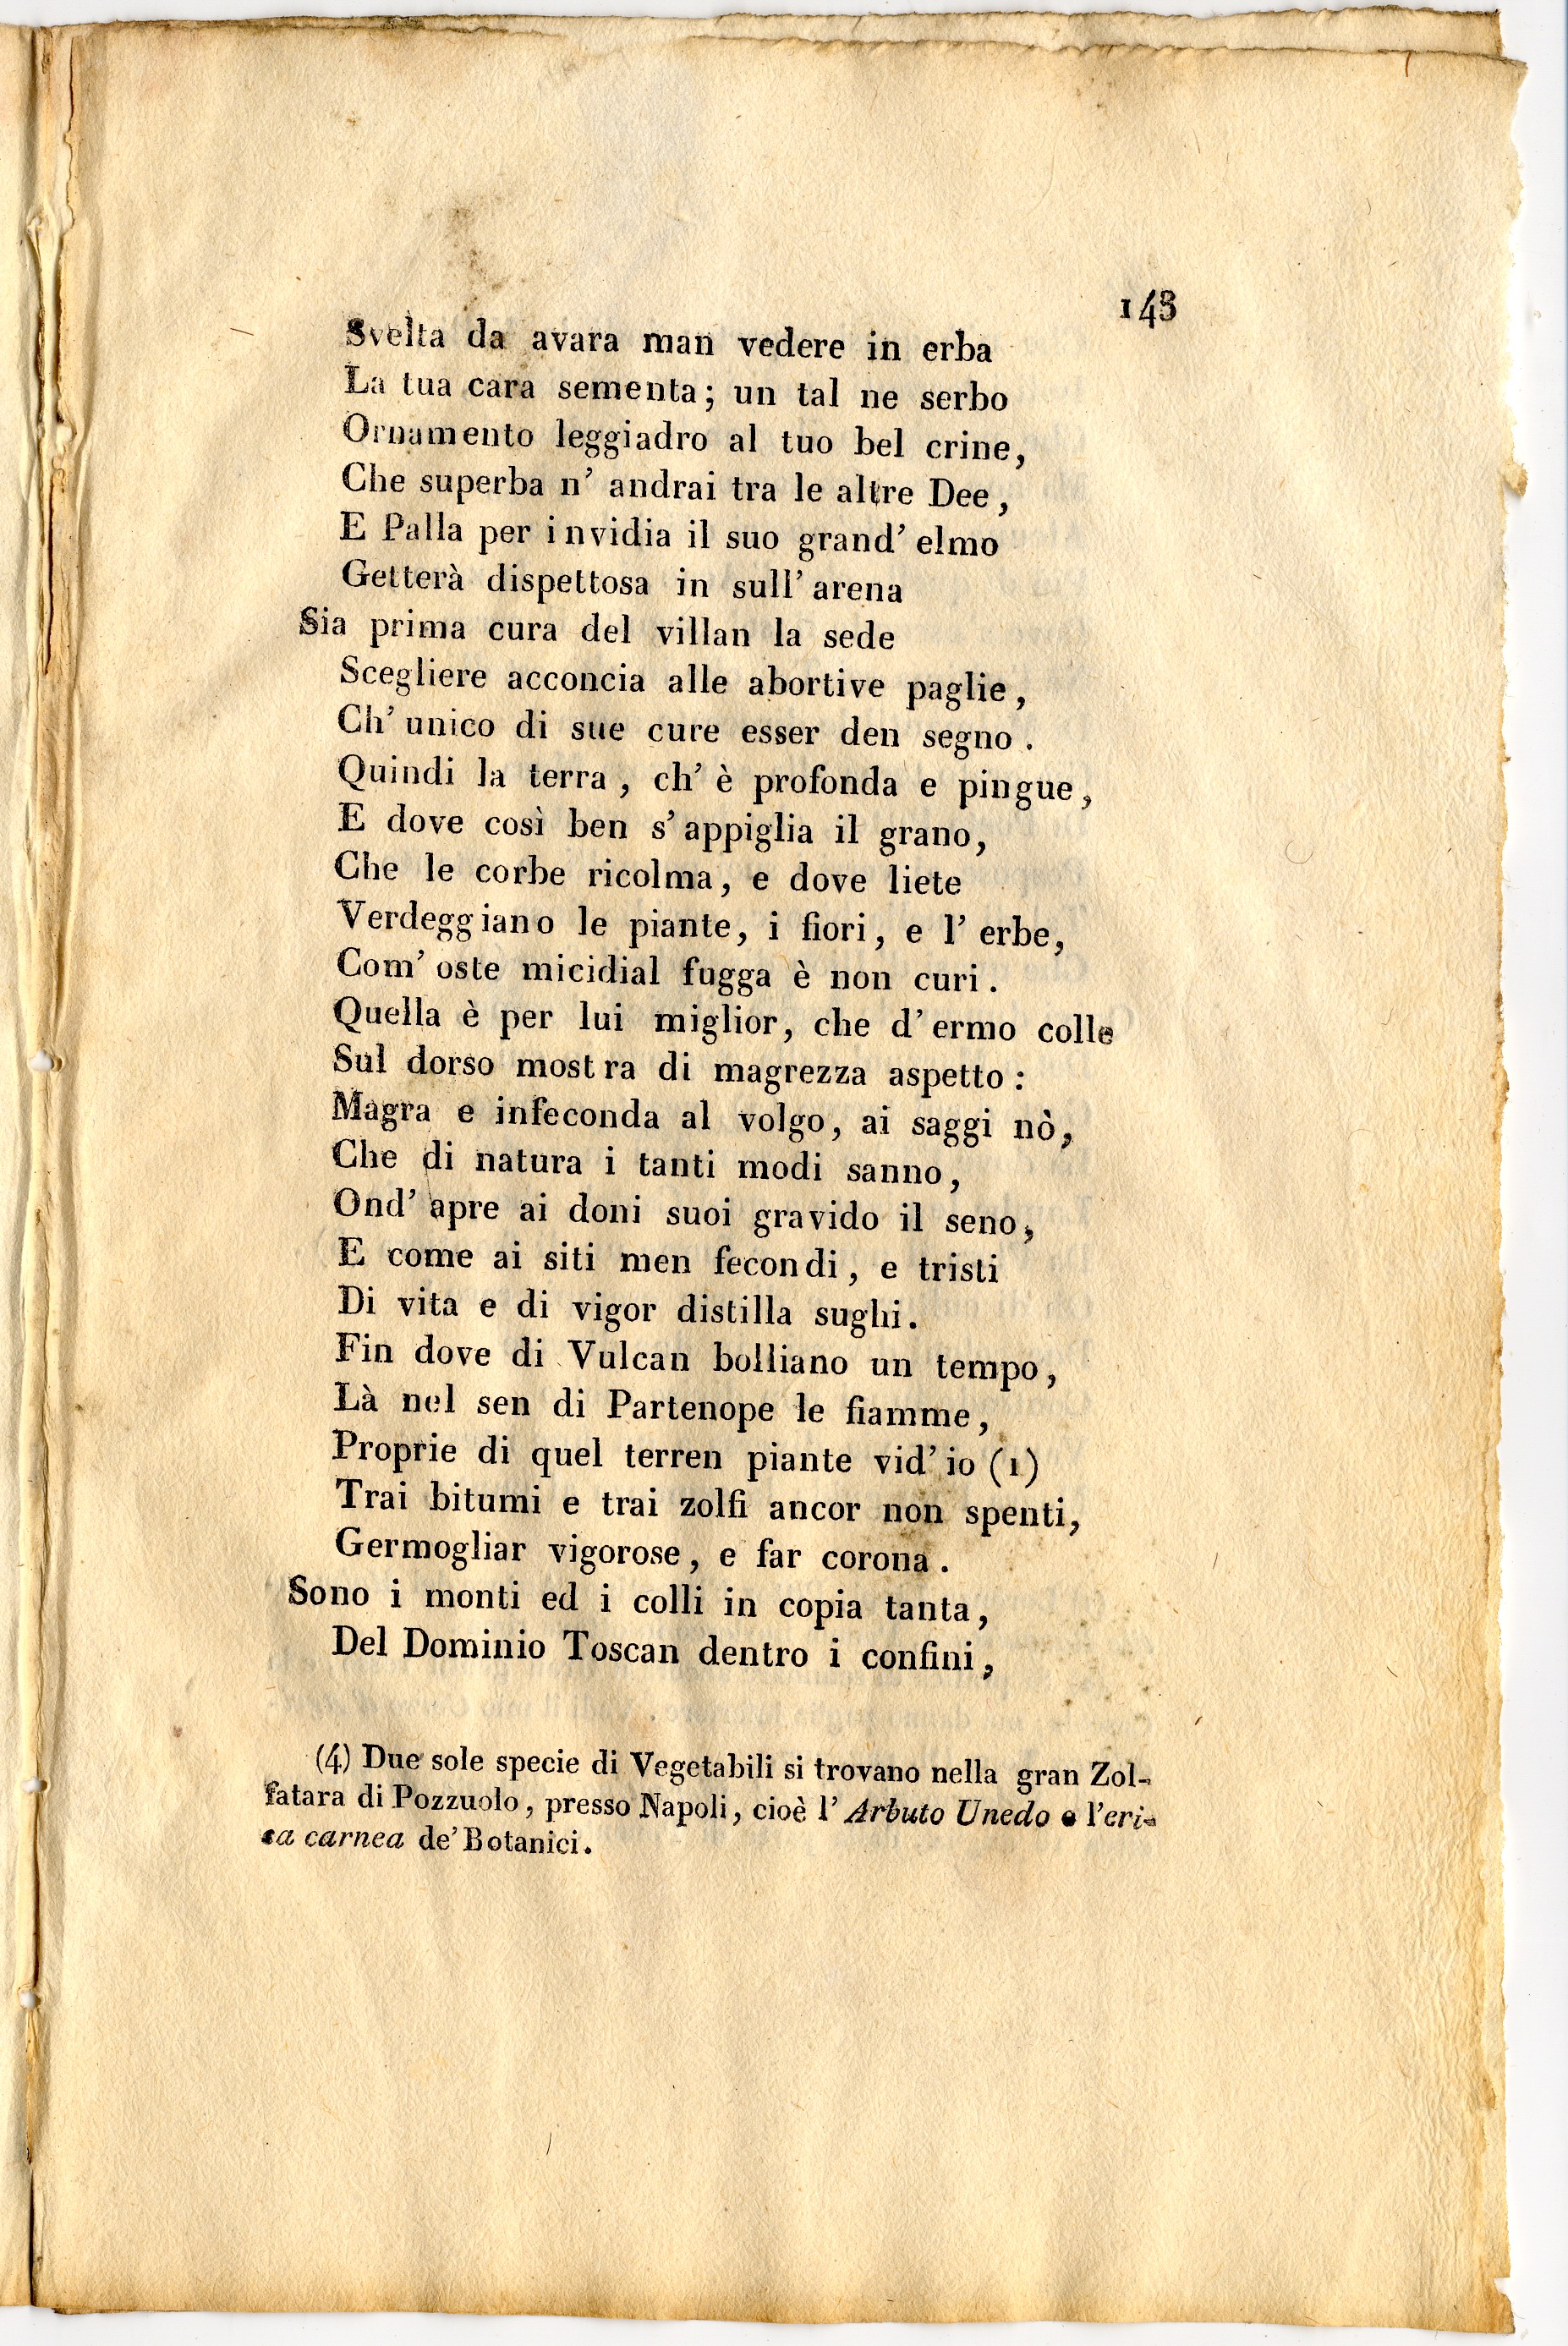 143
Svelta da avara man vedere in erba
La tua cara sementa; un tal ne serbo
Ornamento leggiadro al tuo bel crine,
Che superba n' andrai tra le altre Dee,
E Palla per invidia il suo grand' elmo
Getterà dispettosa in sull' arena
Sia prima cura del villan la sede
Scegliere acconcia alle abortive paglie,
Ch' unico di sue cure esser den segno.
Quindi la terra, ch' è profonda e pingue,
E dove così ben s' appiglia il grano,
Che le corbe ricolma, e dove liete
Verdeggiano le piante, i fiori, e l' erbe,
Com' oste micidial fugga è non curi.
Quella è per lui miglior, che d' ermo colle
Sul dorso mostra di magrezza aspetto:
Magra e infeconda al volgo, ai saggi nò,
Che di natura i tanti modi sanno,
Ond' apre ai doni suoi gravido il seno,
E come ai siti men fecondi, e tristi
Di vita e di vigor distilla sughi.
Fin dove di Vulcan bolliano un tempo,
Là nel sen di Partenope le fiamme,
Proprie di quel terren piante vid' io (1)
Trai bitumi e trai zolfi ancor non spenti,
Germogliar vigorose, e far corona.
Sono i monti ed i colli in copia tanta,
Del Dominio Toscan dentro i confini,
(4) Due sole specie di Vegetabili si trovano nella gran Zol-
fatara di Pozzuolo, presso Napoli, cioè l' Arbuto Unedo e l'eri-
ca carnea de' Botanici.